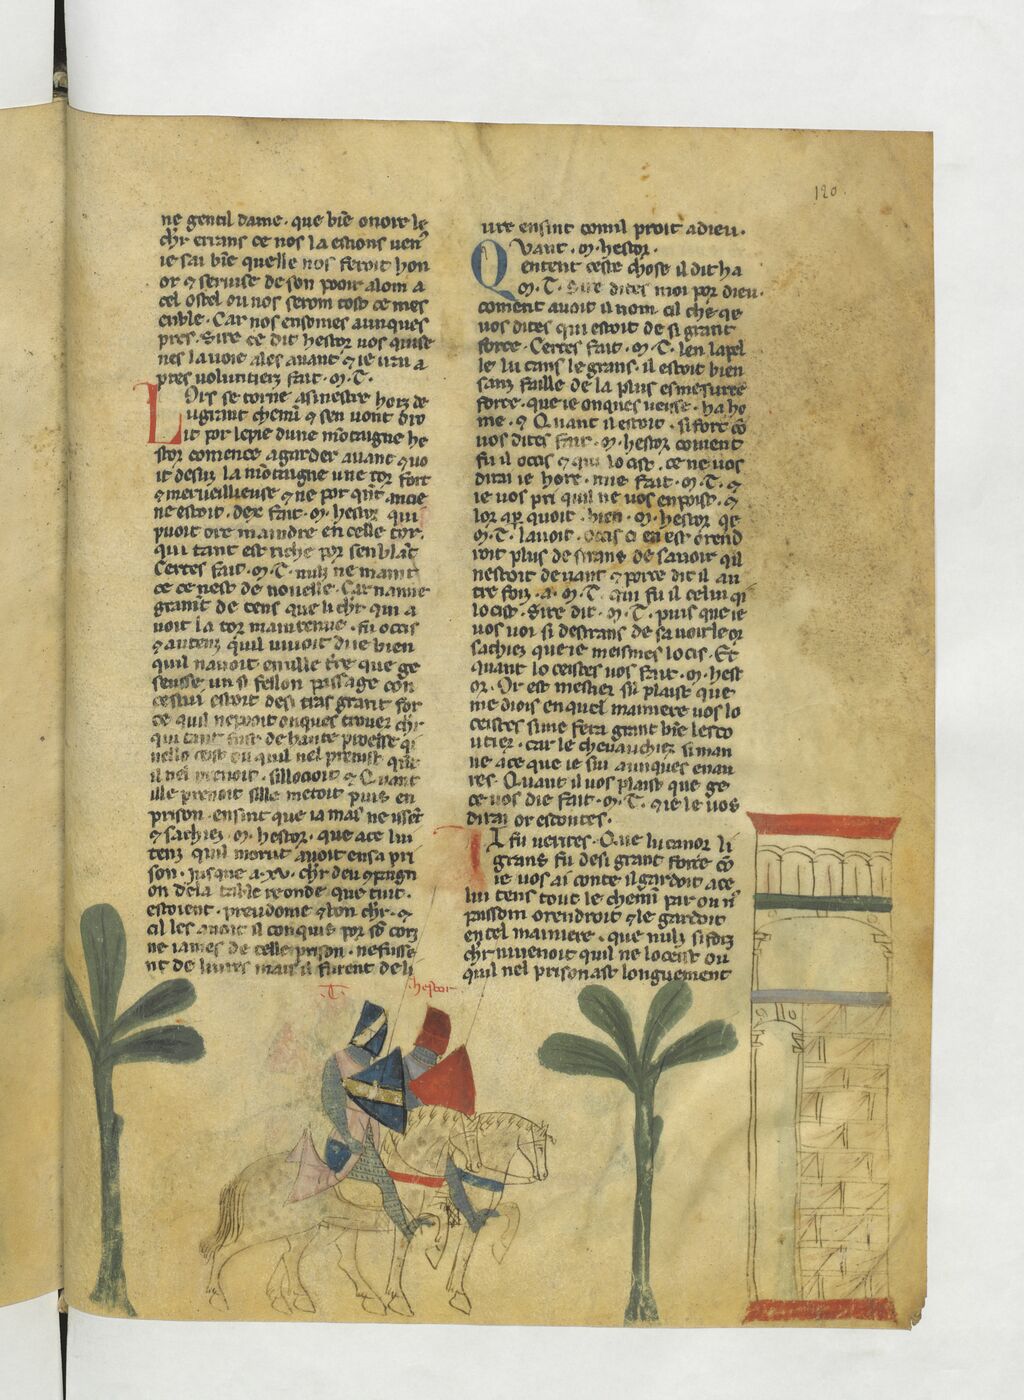 120.
ne gentil dame · que bīe onore le
chr̄ errans ce nos la estions uen᷑
ie sai bīe quelle nos feroit hon
or ⁊ seruise de son pooir alom a
cel ostel ou nos serom tost ce mes
enble · Car nos ensomes aunques
pres · Sire ce dit hestor uos quise
nes la uoie ales auant ⁊ ie uru a
pres uoluntierz fait · m̄ · T ·
Lors se torne asinestre horz de
ugrant chemī ⁊ sen uont dro
it por lepie dune mōtaigne he
stor comence agarder auant ⁊ uo
it desus la mōtaigne une tor fort
⁊ merueilleuse ⁊ ne por qn̄t
ne estoit · dex fait · m̄ · hestor qui
puoit ore maindre en celle tor ·
qui tant est riche por senblāt
Certes fait · m̄ · T · nulz ne maint
ce ce nest de nouelle · Car nanme
gramt de tens que li chr̄ qui a
uoit la tor maintenue · fu ocis
⁊ autenz quil uiuoit die bien
quil nauoit en ulle tr̄e que ge
seusse un si fellon passage con
cestui estoit desi tras grant for
ce quil nepooit onques trouer chr̄
qui tant fust de haute proesse qi
nello ceist ou quil nel preinst que
il nel prenoit · sillocioit ⁊ Quant
ille prenoit sille metoit puis en
prison · ensint que ia mais ne usset
⁊ sachiez · m̄ · hestor · que ace lui
tenz quil morut auoit ensa pri
son · iusque a · xv · chr̄ deu ꝯpagn
on dela table reonde que tuit ·
estoient · preudome ⁊ bon chr̄ · ⁊
cil les auoit il conquis por sō corz
ne iames de celle prison · nefusse
nt de liures mais il furent deli
ure ensint comil proit adieu ·
Quant · m̄ · hestor ·
entent ceste chose il dit ha
m̄ · T · Sire dites moi por dieu ·
coment auoit il nom cil chr̄ qe
uos dites qui estoit de si grant
force · Certes fait · m̄ · T · len lapel
le lu cans le grans · il estoit bien
sanz faille de la plus esmesuree
force · que ie onques ueisse · ha ho
me · ⁊ Quant il estoit · si fort cō
uos dites fait · m̄ · hestor coment
fu il ocis ⁊ qui lo cist · ce ne uos
dirai ie hore · mie fait · m̄ · T · ⁊
ie uos pri quil ne uos enpoist · ⁊
lor apr̄ quoit · bien · m̄ · hestor qe
m̄ · T · lauoit · ocis ci en est orend
roit plus desirans de sauoir qil
nestoit deuant ⁊ porce dit il au
tre foiz · a · m̄ · T · qui fu il celui qi
lo cist · Sire dit · m̄ · T · puis que ie
uos uoi si desirans de sauoir le or
sachiez que ie meismes locis · Et
quant lo ceistes uos fait · m̄ · hest
or · Or est mestier sil plaist que
me diois en quel maniere uos lo
ceistes si me fera grant bīe lesco
utier · car le cheuauchier si man
ne ace que ie sui aunques enau
res · Quant il uos plaist que ge
ce uos die fait · m̄ · T · gie le uos
dirai or escoutes ·
Il fu uerites · Que lucanor li
grans fu desi grant force cō
ie uos ai conte il gardoit ace
lui tens tout le chemī par ou n᷑
passom orendroit ⁊ le gardoit
en cel maniere · que nulz si foiz
chr̄ niuenoit quil ne loceist ou
quil nel prison ast longuement
· T · hestor